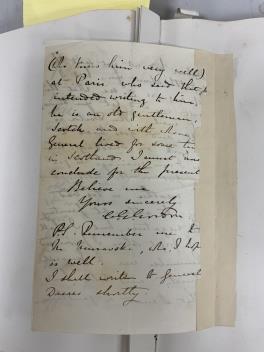 (He knows him very well)
at Paris who said that he
intended writing to him,
he is an old gentleman,
Scotch, and with
General lived for some
in Scotland I must now
conclude for the present
Believe me
Yours sincerely
C. G. Gordon
P.S. Remember me to
Mr , who I hope
is well.
I shall write to General
shortly.